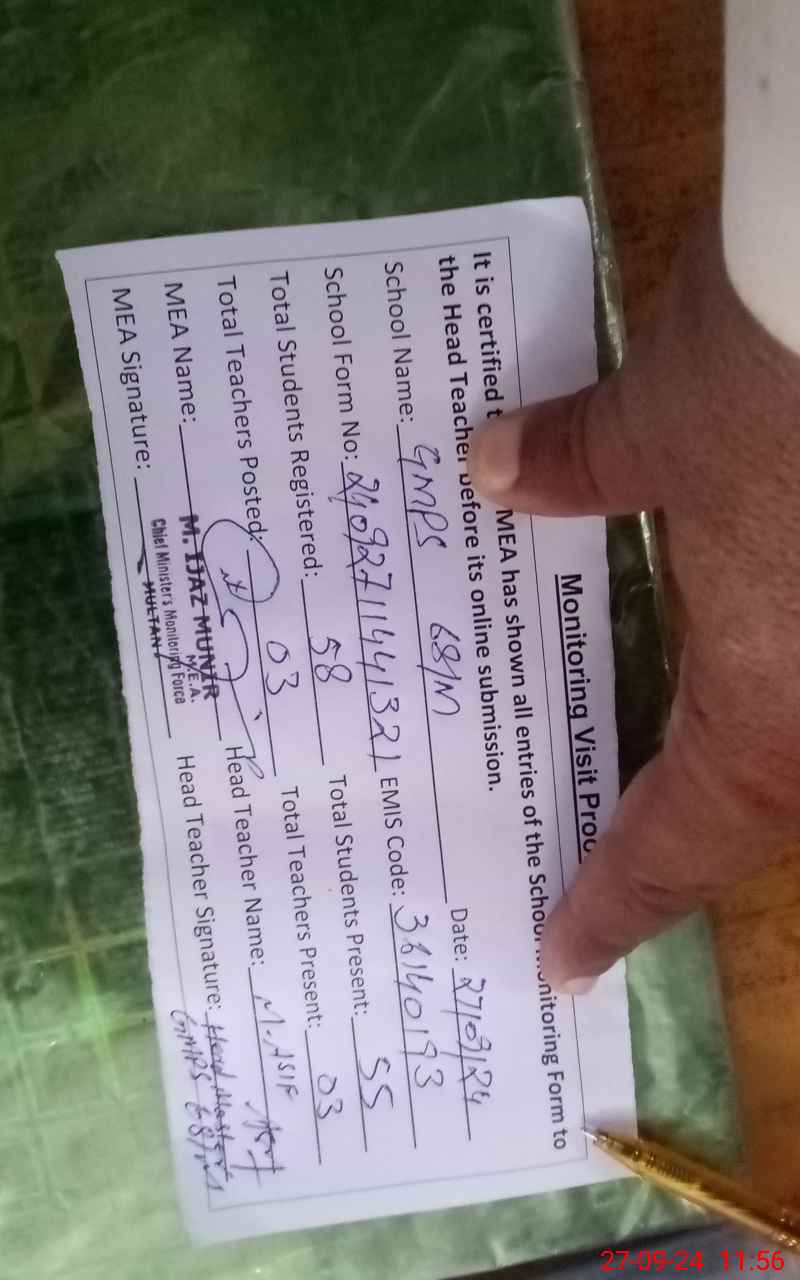 Monitoring Visit Proo
It is certified t MEA has shown all entries of the School Monitoring Form to
the Head Teacher before its online submission.
School Name: GMPS 68/M Date: 27/09/24
School Form No: 24092711441321 EMIS Code: 36140193
Total Students Registered: 58 Total Students Present: 55
Total Teachers Posted: 03 Total Teachers Present: 03
MEA Name: M. IJAZ MUNIR Head Teacher Name: M. ASIF
M.E.A.
Chief Minister's Monitoring Force
MEA Signature: MULTAN Head Teacher Signature: Head Master
GMPS 68/M
27-09-24 11:56